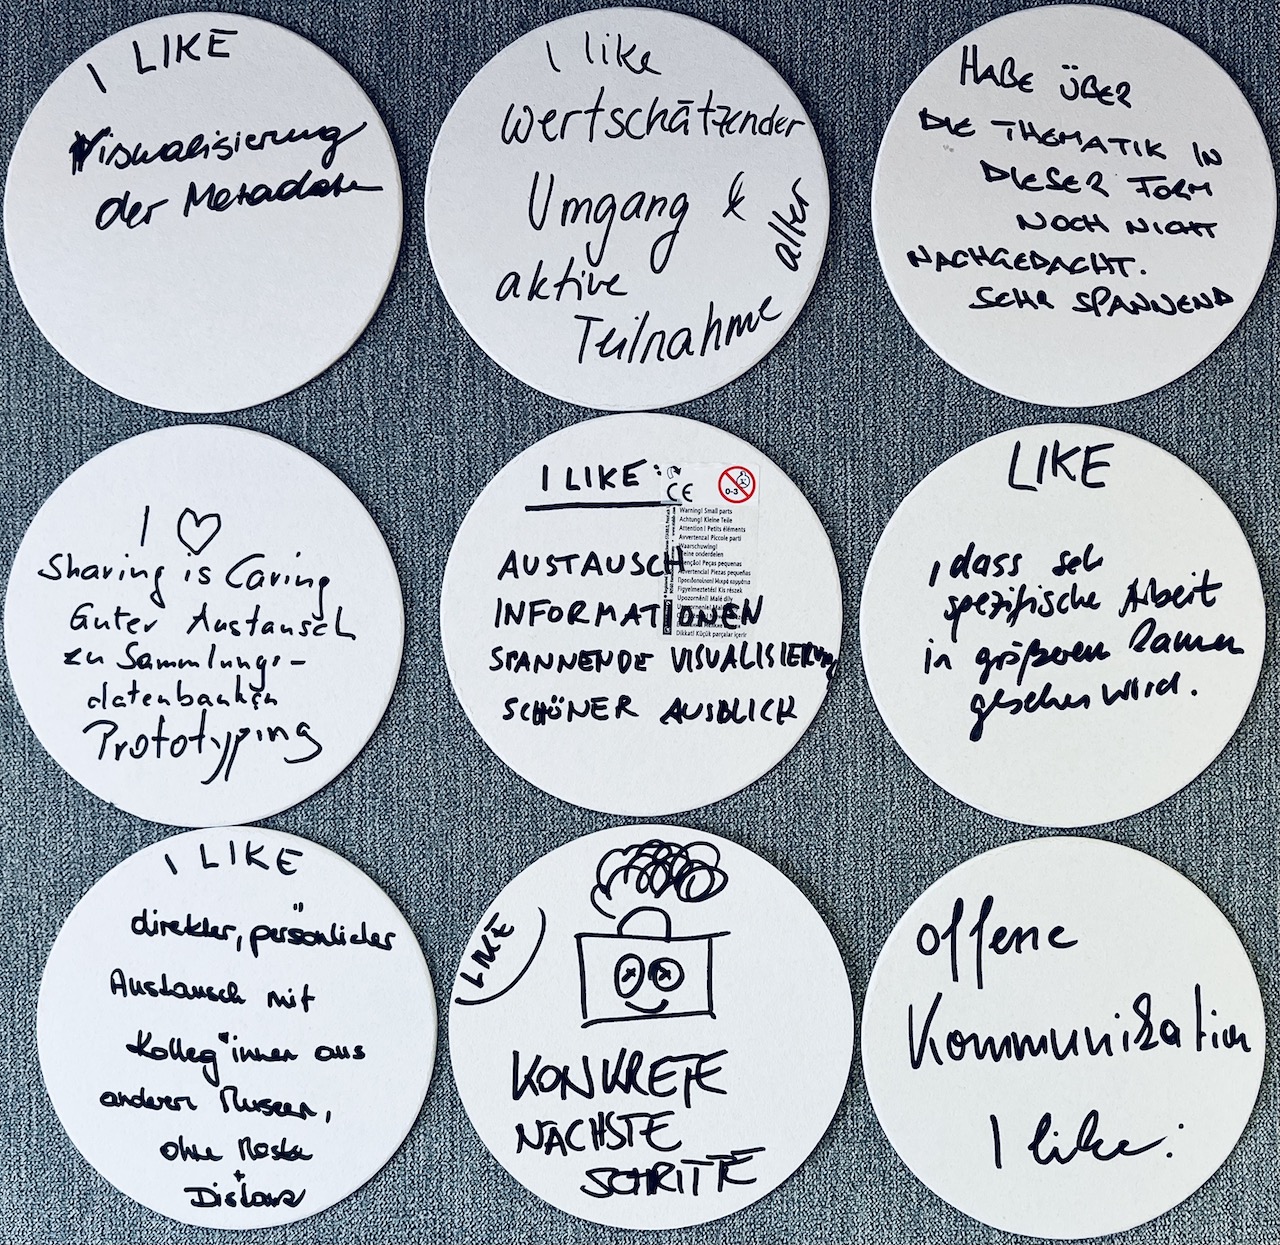 I LIKE
Visualisierung
der Metadaten
I like
wertschätzender
Umgang &
aktive
Teilnahme aller
HABE ÜBER
DIE THEMATIK IN
DIESER FORM
NOCH NICHT
NACHGEDACHT.
SEHR SPANNEND
I ♡
Sharing is Caring
Guter Austausch
zu Sammlungs-
datenbanken
Prototyping
I LIKE:
AUSTAUSCH
INFORMATIONEN
SPANNENDE VISUALISIERUNG
SCHÖNER AUSBLICK
CE
0-3
Warning! Small parts
Achtung! Kleine Teile
Attention! Petits éléments
Avvertenza! Piccole parti
Waarschuwing!
Kleine onderdelen
Peças pequenas
Advertencia! Piezas pequeñas
Προειδοποίηση! Μικρά κομμάτια
Figyelmeztetés! Kis részek
Upozornění! Malé díly
Dikkat! Küçük parçalar içerir
LIKE
, dass seh
spezifische Arbeit
in größeren Ramen
gesehen wird.
I LIKE
direkter, persönlicher
Austausch mit
Kolleg*innen aus
anderen Museen,
ohne Maske
+
Distanz
LIKE
KONKRETE
NÄCHSTE
SCHRITTE
offene
Kommunikation
I like.